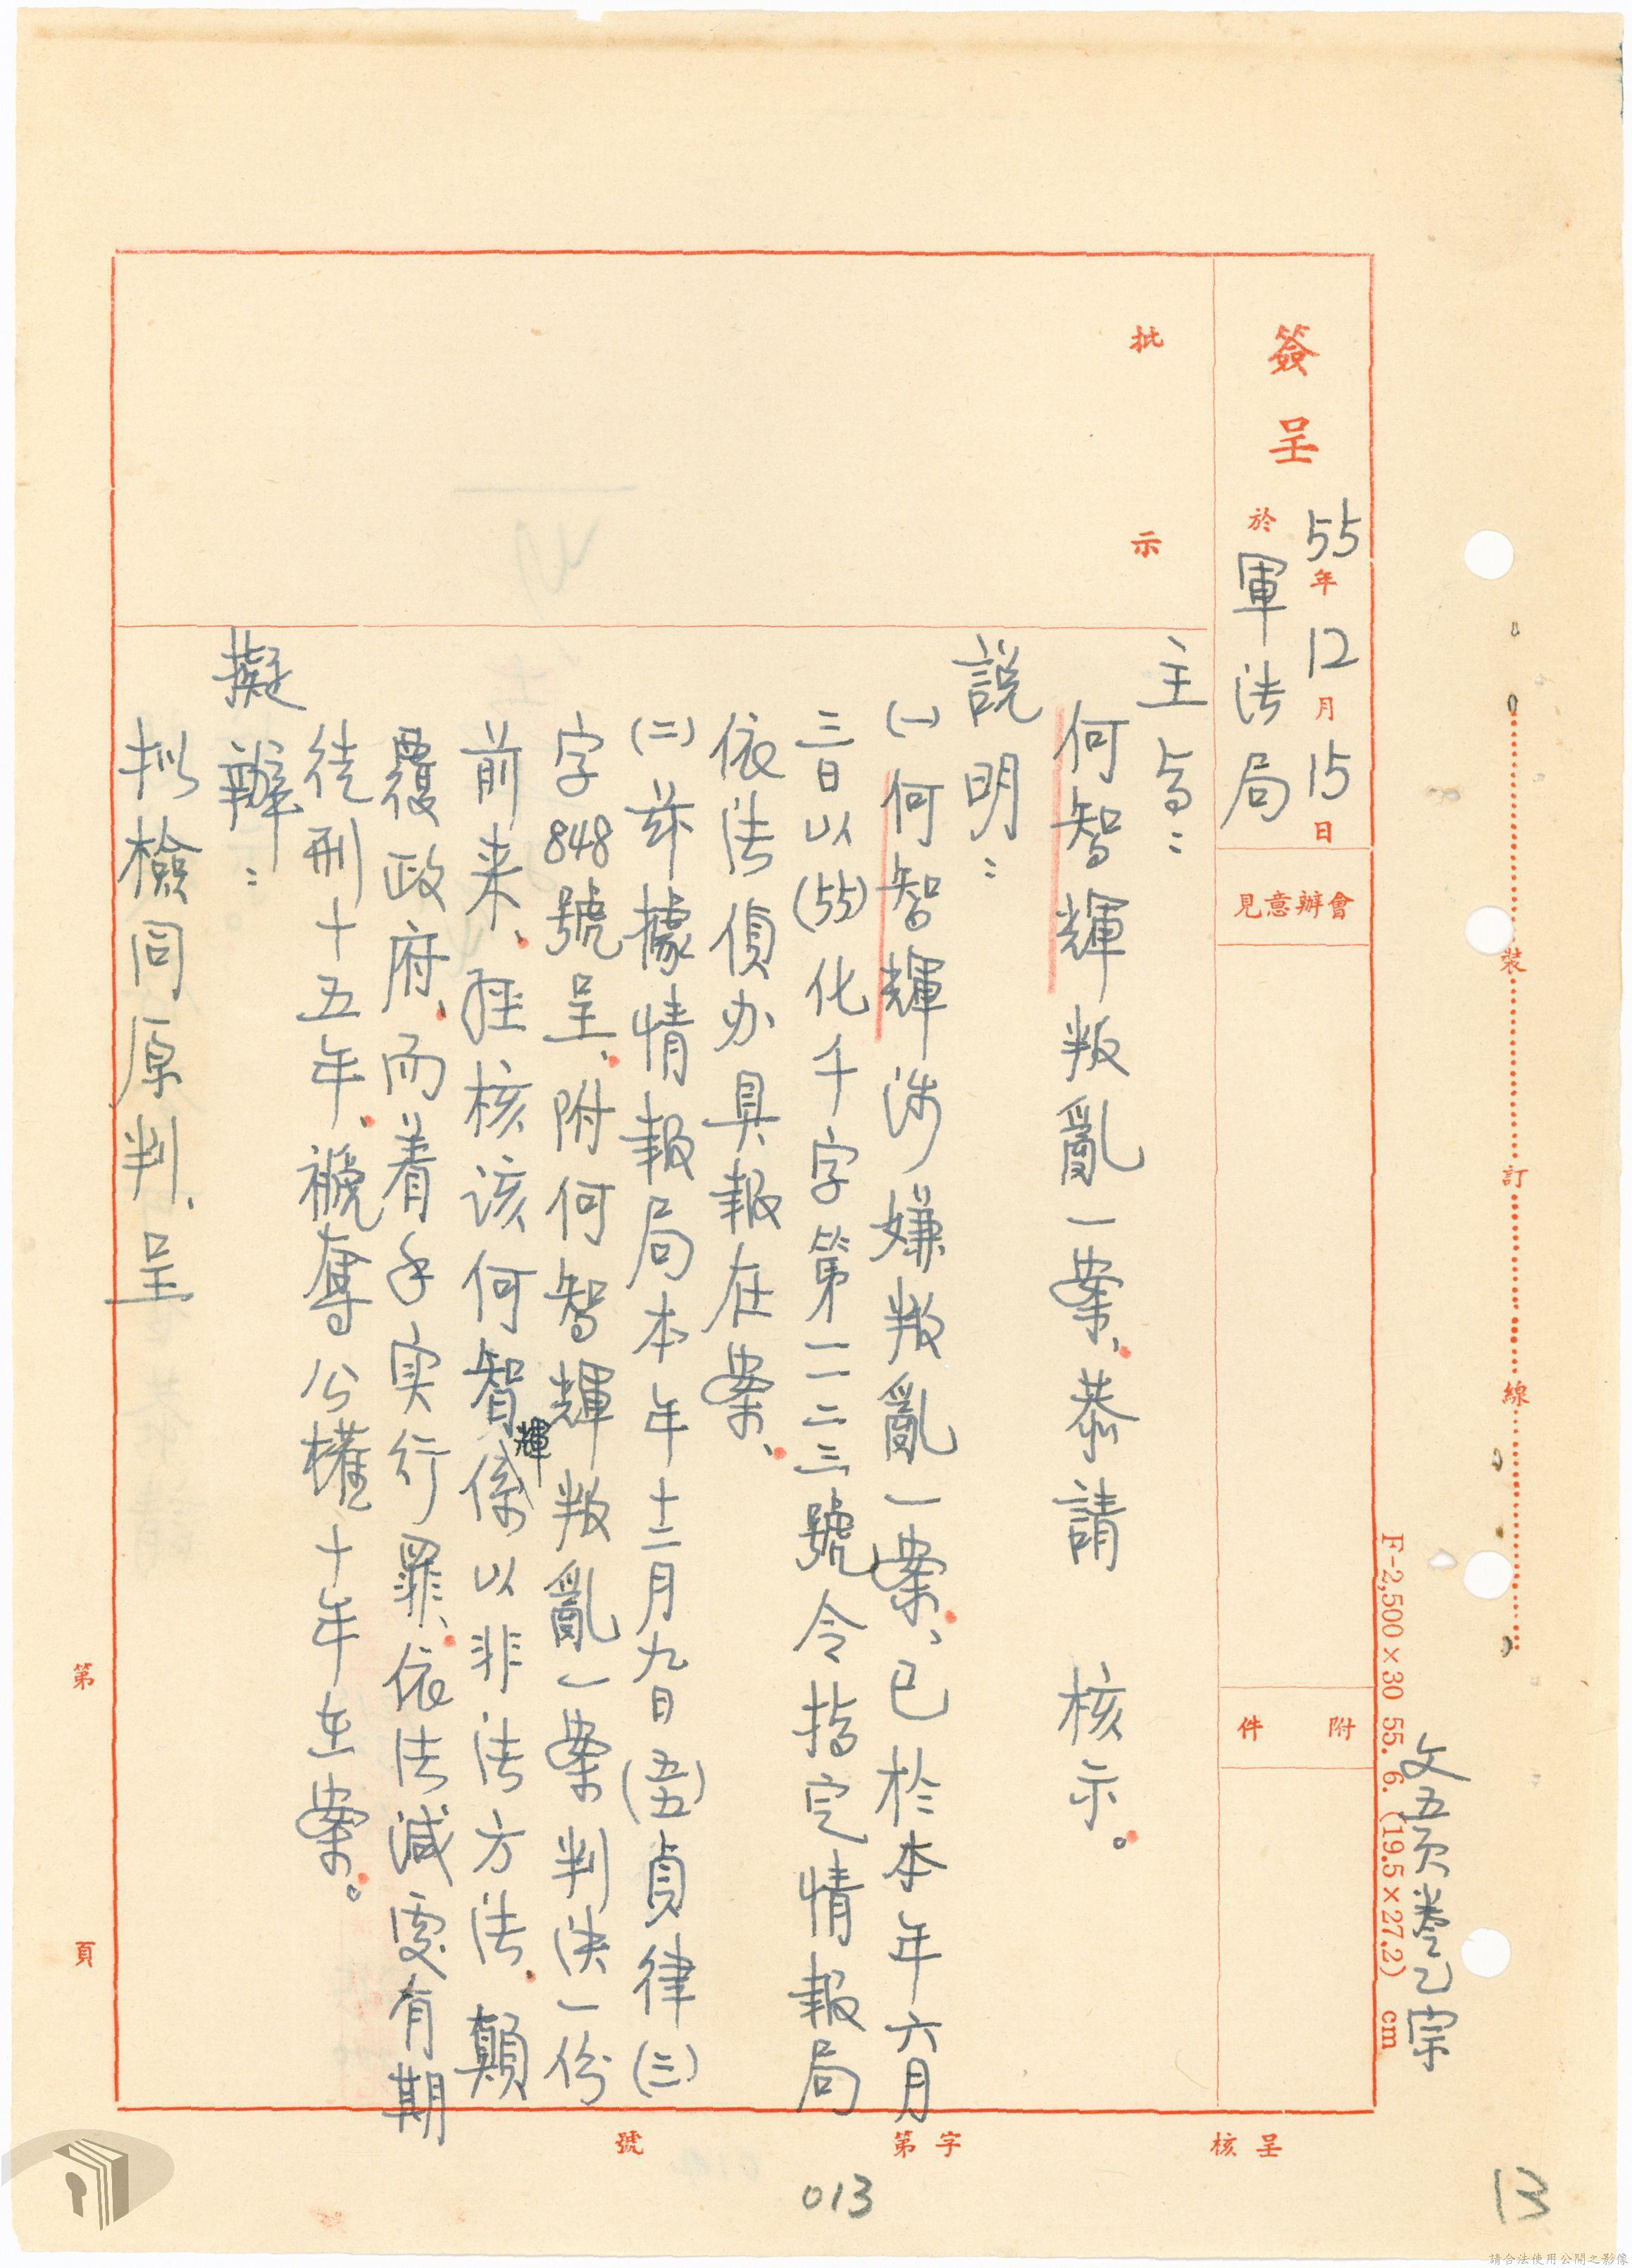 簽呈
55年12月15日
於軍法局
會辦意見
附件
批示
主旨：
何智輝叛亂一案、恭請　核示。
說明：
(一)何智輝涉嫌叛亂一案、已於本年六月
三日以(55)化千字第一一二三號令指定情報局
依法偵办具報在案、
(二)茲據情報局本年十二月九日(五五)貞律(三)
字848號呈、附何智輝叛亂一案判決一份
前来、經核该何智輝係以非法方法、顛
覆政府、而着手实行罪、依法減處有期
徒刑十五年、褫奪公權十年在案。
擬辦：
拟檢同原判、呈
裝訂線
F-2,500×30 55. 6. (19.5×27.2) cm
文五頁卷乙宗
第頁
呈核
字第
號
013
13
請合法使用公開之影像